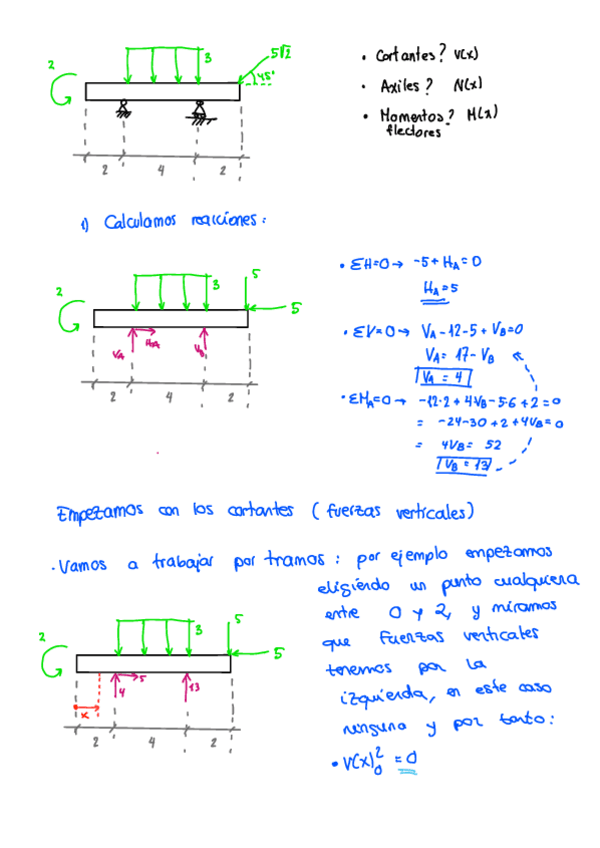 2
3
5√2
45°
2
4
2
• Cortantes? V(x)
• Axiles? N(x)
• Momentos? M(x)
flectores
1) Calculamos reacciones:
2
3
5
5
VA
HA
VB
2
4
2
• ΣH=0 → -5 + HA = 0
HA = 5
• ΣV=0 → VA - 12 - 5 + VB = 0
VA = 17 - VB
VA = 4
• ΣMA=0 → -12·2 + 4VB - 5·6 + 2 = 0
= -24 - 30 + 2 + 4VB = 0
= 4VB = 52
VB = 13
Empezamos con los cortantes (fuerzas verticales)
• Vamos a trabajar por tramos: por ejemplo empezamos
eligiendo un punto cualquiera
entre 0 y 2, y miramos
que fuerzas verticales
tenemos por la
izquierda, en este caso
ninguna y por tanto:
• V(x)₀² = 0
2
3
5
5
4
5
13
x
2
4
2